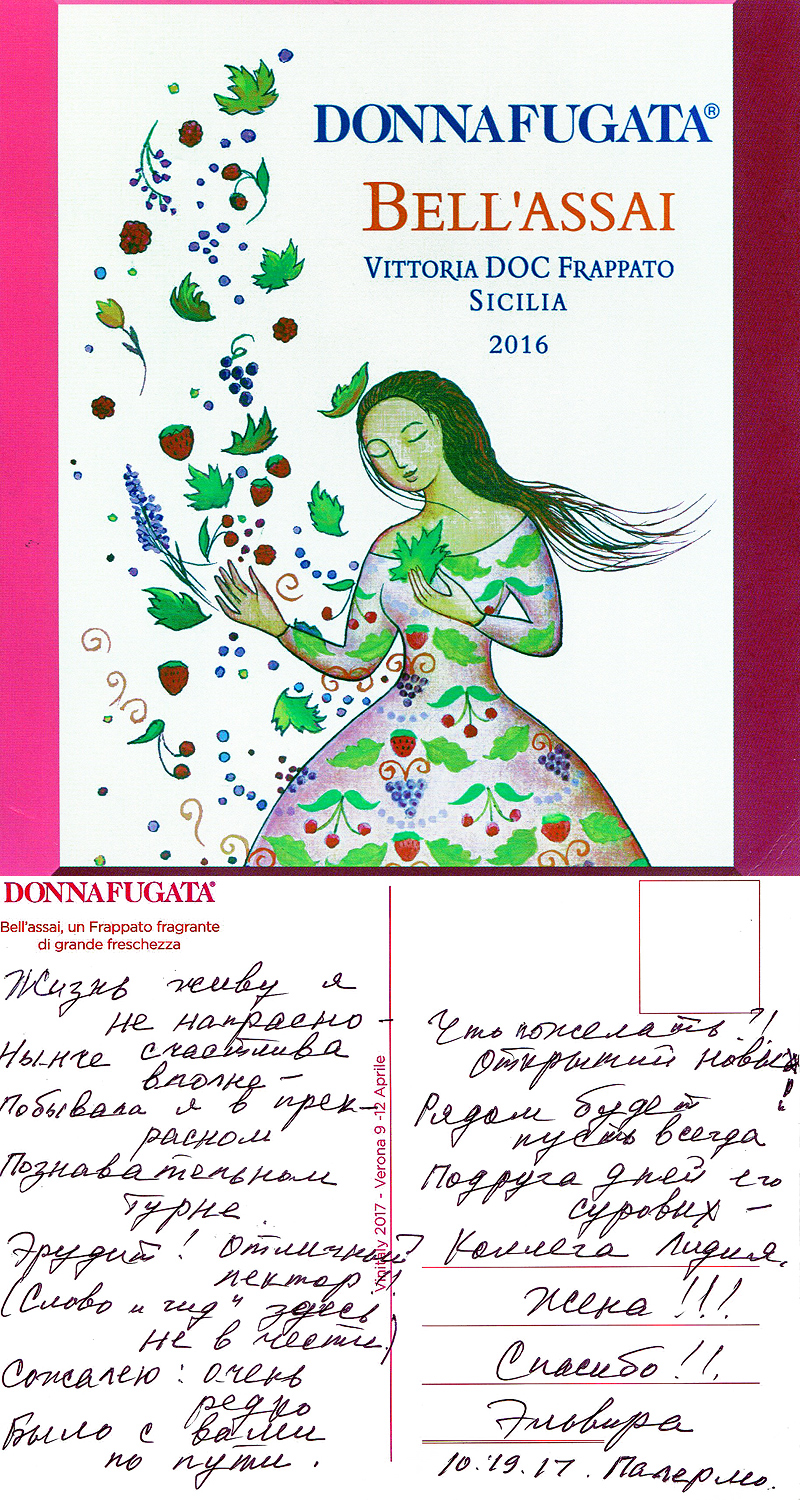 DONNAFUGATA®
BELL'ASSAI
VITTORIA DOC FRAPPATO
SICILIA
2016
DONNAFUGATA®
Bell'assai, un Frappato fragrante
di grande freschezza
Жизнь живу я
не напрасно –
Нынче счастлива
вполне –
Побывала я в прек-
расном
Познавательном
турне.
Эрудит! Отличный
лектор!
(Слово „гид" здесь
не в чести)
Сожалею: очень
редко
Было с вами
по пути.
Vinitaly 2017 - Verona 9 -12 Aprile
Что пожелать?!
Открытий новых!
Рядом будет
пусть всегда
Подруга дней его
суровых –
Коллега Лидия,
Жена!!!
Спасибо!!.
Эльвира
10.19.17. Палермо.